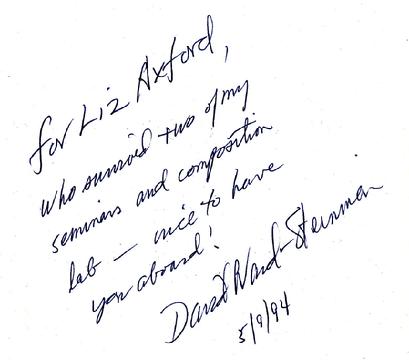 for Liz Axford,
who survived two of my
seminars and composition
lab — nice to have
you aboard!
David Ward-Steinman
5/9/94